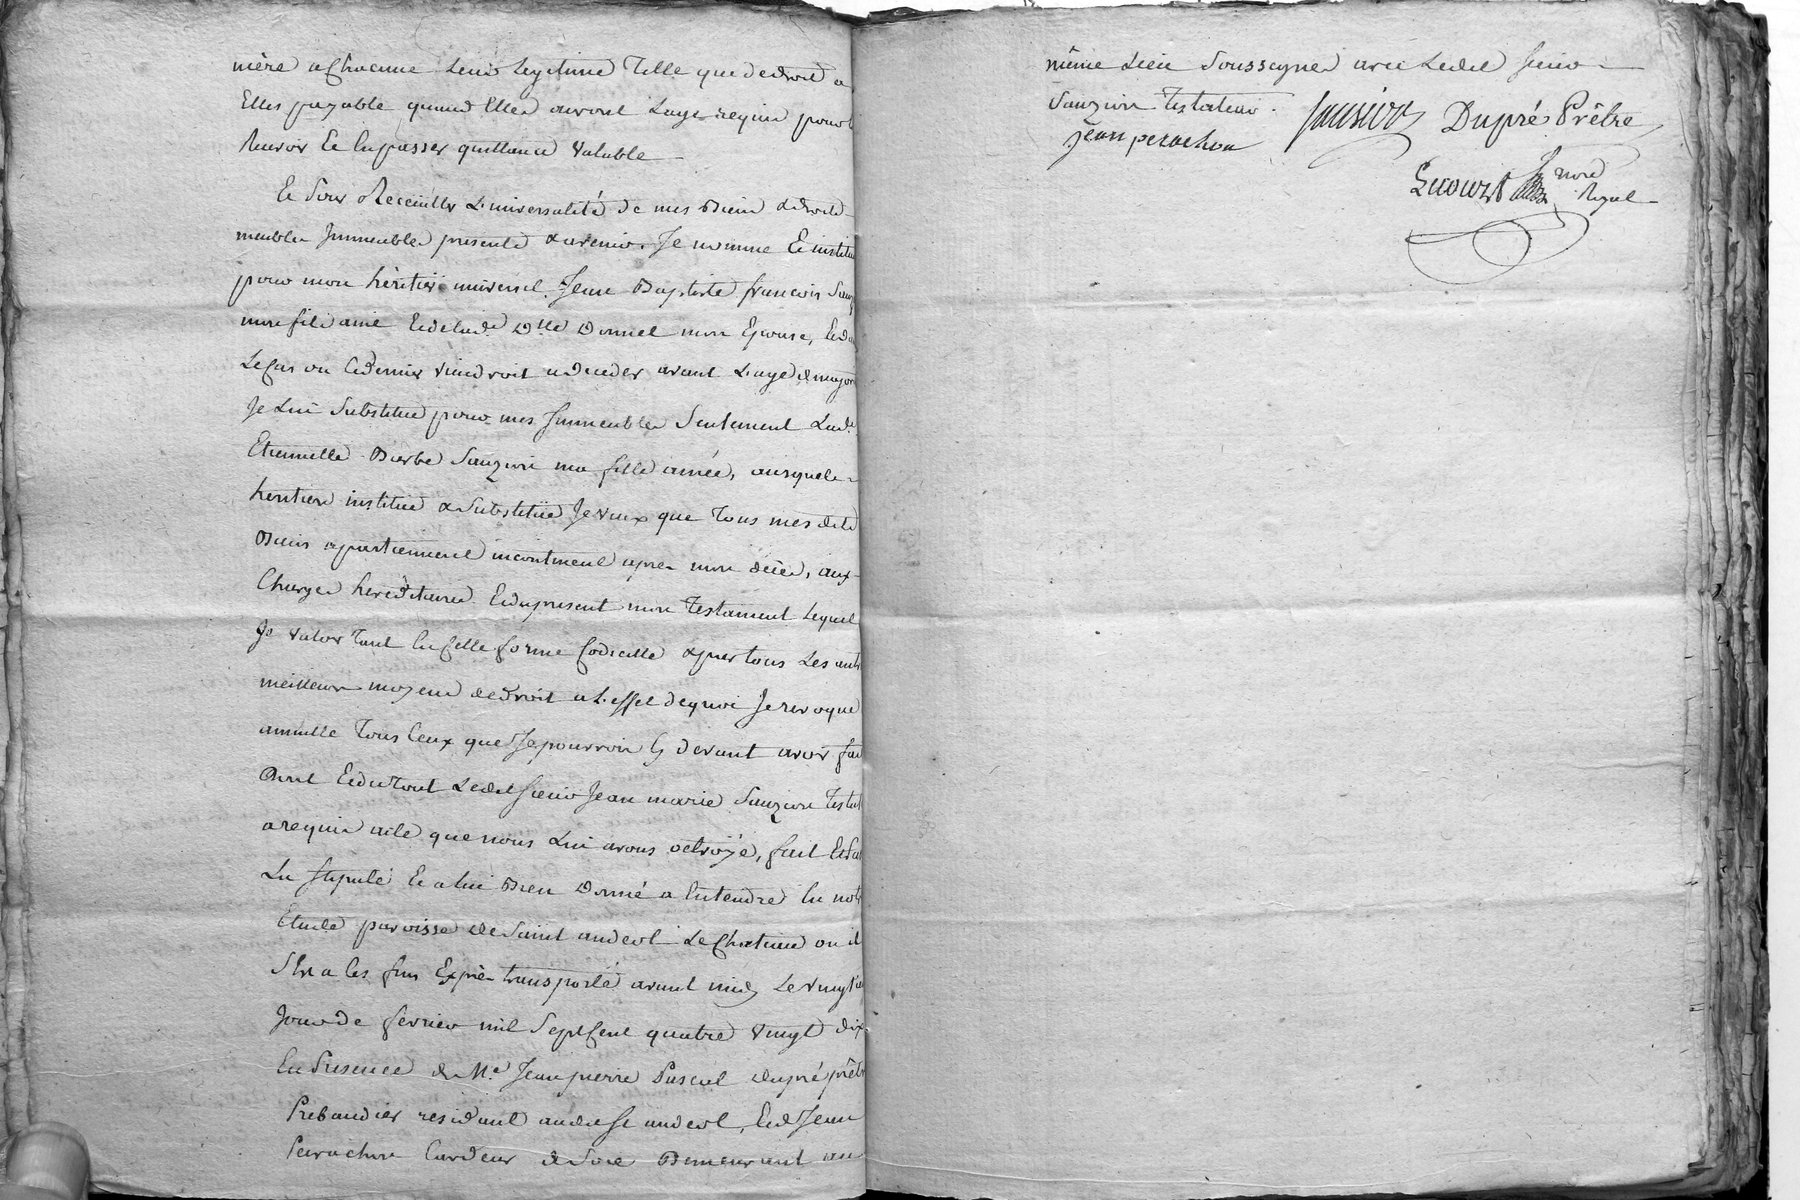 mère a chacune leur legitime telle que de droit a
Elles payable quand Elles auront L'age requis pour
Avoir & En passer quittance valable
Et Pour Receüillir L'universalité de mes Biens & droits
meubles Immeubles presents & avenir. Je nomme & institue
pour mon héritier universel Jean Baptiste françois Sauz
mon fils ainé Et de lad.e D.lle Donnet mon Epouse, Et da
Le Cas ou Ce dernier viendroit a deceder avant L'age de majori
Je Lui Substitue pour mes Immeubles Seulement Lad.e
Etiennette Barbe Sauzion ma fille ainée, ausquels
heritiers institué & Substitué Je veux que Tous mes dits
Biens apartiennent incontinent apres mon décès, aux
Charges hereditaires Et du present mon Testament Lequel
Je valoir Tant En Cette forme Codicille & par tous Les autr
meilleurs moyens de droit a L'effet de quoi Je revoque
annulle Tous Ceux que Je pourrois Cy devant avoir fai
Dont Et du Tout Ledit Sieur Jean marie Sauzion Testat
a requis acte que nous Lui avons octroÿé, fait Et Pas
Lu Stipulé Et a lui Bien Donné a Entendre En notr
Etude paroisse de Saint andeol Le Chateau ou il
S'est a Ces fins Exprès transporté avant midy Le vingti
Jour de fevrier mil Sept Cent quatre vingt dix
En Presence de M.e Jean pierre Pascal dupré prêtr
Prebandier residant audit St andeol, Et de Jean
Perachon Cardeur de Soie Demeurant au
même Lieu Soussignés avec Ledit Sieur
Sauzion Testateur.
Sauzion Dupré Prêtre
Jean perachon
no.re
Royal